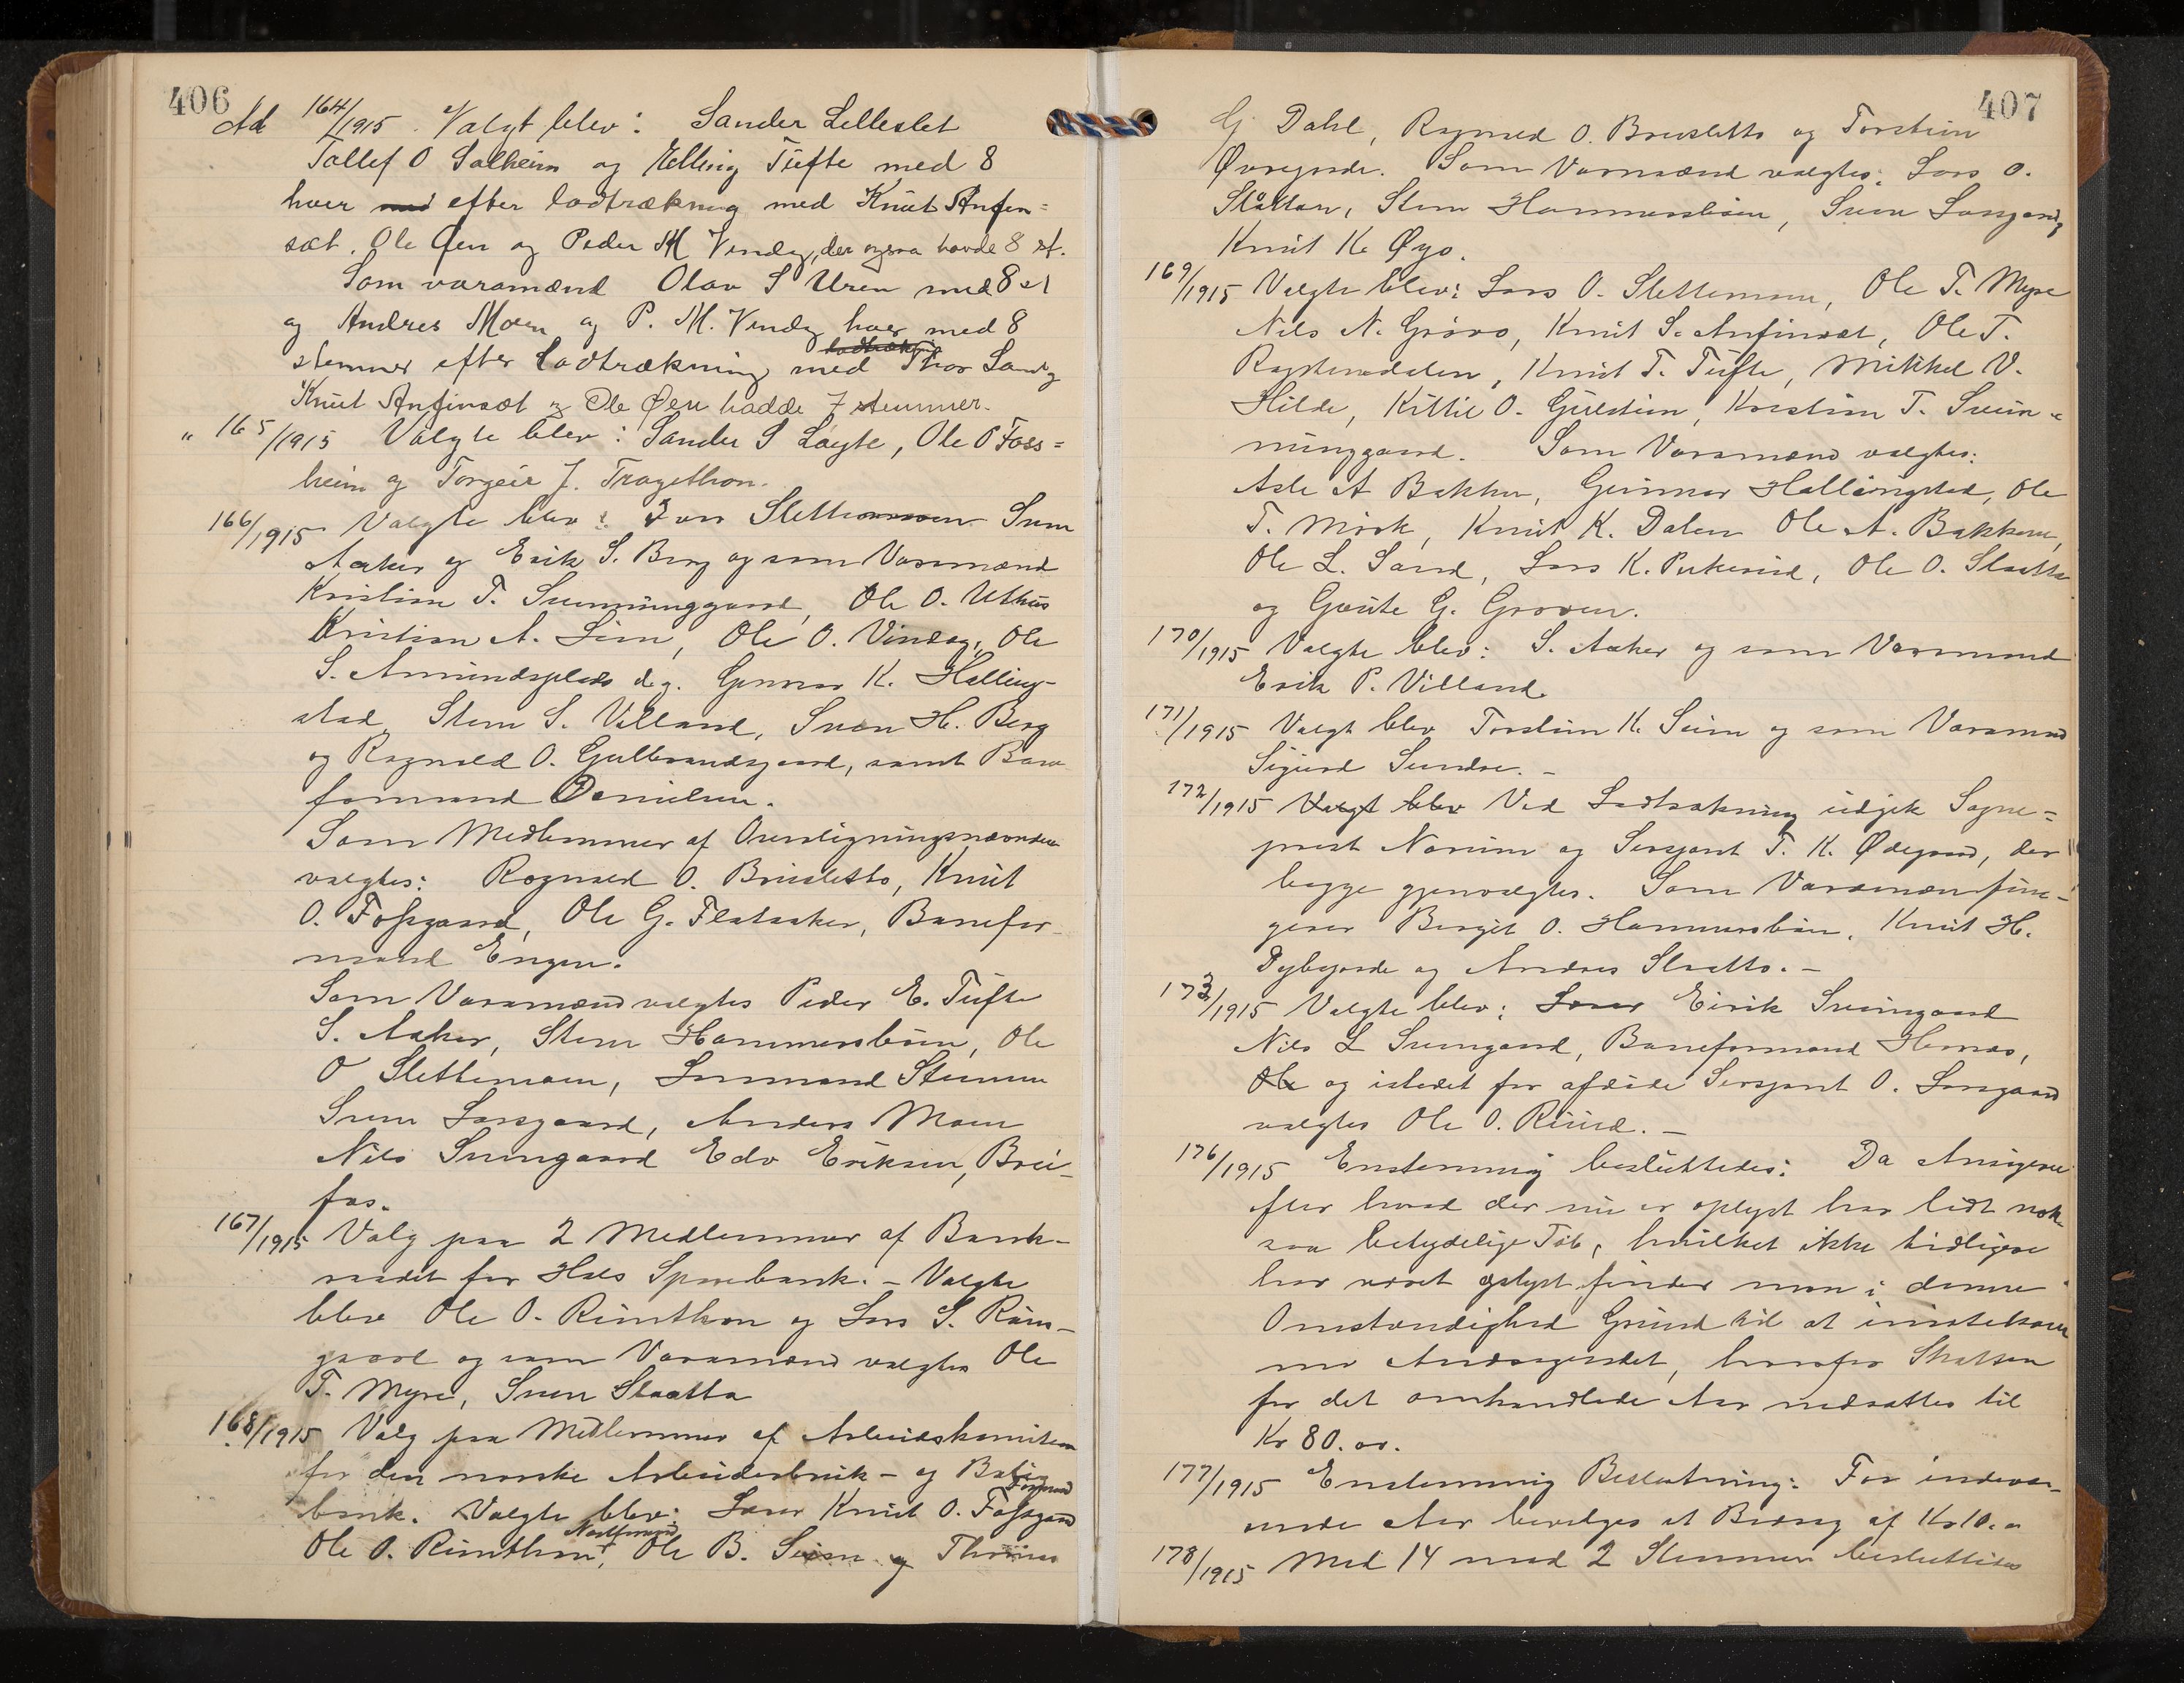 406
Ad 164/1915. Valgt blev: Sander Lelleslet
Tollef O Solheim og Elling Tufte med 8
hver med efter lodtrækning med Knut Anfin=
sæt. Ole Øen og Peder M Vindeg, der ogsaa havde 8 st.
Som varamænd Olav S Uren med 8 st
og Andres Moen og P. M. Vindeg hver med 8
stemmer efter lodtrækning med Thor Sand og
Knut Anfinsæt og Ole Øen hadde 7 stemmer.
" 165/1915 Valgte blev: Sander S Løyte, Ole O Foss=
heim og Torgeir J. Tragethon.
166/1915 Valgte blev: Iver Slettemoen Sven
Aaker og Erik S. Berg og som Varamænd
Kristian T. Sveinunggaard, Ole O. Uthus
Kristian A. Lien, Ole O. Vindeg, Ole
S. Amundsplads d.y. Gunnar K. Halling-
stad, Sten S. Villand, Sven H. Berg
og Ragnvald O. Gulbrandsgaard, samt Bane
formand Danielsen.
Som Medlemmer af Overligningsnævnden
valgtes: Ragnvald O. Brusletto, Knut
O. Fossgaard, Ole G. Flataaker, Banefor-
mand Engen.
Som Varamænd valgtes Peder E. Tufte
S. Aaker, Sten Hammersbøen, Ole
O Slettemoen, Lensmand Stensen
Sven Larsgaard, Anders Moen
Nils Sveingaard Edv Eriksen, Brei-
fos.
167/1915 Valg paa 2 Medlemmer af Bank-
raadet for Hols Sparebank. - Valgte
blev Ole O. Rimthon og Lars S. Raun-
gaard og som Varamænd valgtes Ole
T. Myre, Sven Slaatta
168/1915 Valg paa Medlemmer af Arbeidskomiteen
for den norske Arbeiderbruk- og Bolig
bank. Valgte blev: Lærer Knut O. Fossgaard Formand
Ole O. Rimthon, Næstformand Ole B. Seim og
407
G. Dahl, Ragnvald O. Brusletto og Torstein
Øvregarde. Som Varamænd valgtes: Lars O.
Slåtten, Sten Hammersbøen, Sven Larsgard og
Knut K. Øyo.
169/1915 Valgte blev: Lars O. Slettemoen, Ole T. Myre
Nils N. Grøvo, Knut S. Anfinsæt, Ole T.
Raggsteindalen, Knut T. Tufte, Mikkel V.
Hilde, Kittil O. Gulstein, Kristian T. Svein=
unggaard. Som Varamænd valgtes:
Asle A Bakken, Gunnar Hallingstad, Ole
T. Mørk, Knut K. Dalen Ole A. Bakken,
Ole L. Sand, Lars K. Pukerud, Ole O. Slaatto
og Gaute G. Groven.
170/1915 Valgte blev: S. Aaker og som Varamand
Erik P. Villand.
171/1915 Valgt blev Torstein K. Seim og som Varamand
Sigurd Sundre. -
172/1915 Valgt blev Ved Lodtrækning udgik Sogne=
prest Norum og Sersjant T. K. Ødegaard, der
begge gjenvalgtes. Som Varamæn fun-
gerer Birgit O. Hammersbøen, Knut H.
Dybegarde og Andres Slaatto. -
173/1915 Valgte blev: Lærer Eirik Sveingaard
Nils L Sveingaard, Baneformand Hernæs,
Ole og istedet for afdøde Sersjant O. Larsgaard
valgtes Ole O. Ruud. -
176/1915 Enstemmig besluttedes: Da Ansøgeren
efter hvad der nu er oplyst har lidt nok
saa betydelige Tab, hvilket ikke tidligere
har været oplyst finder man i denne
Omstændighed Grund til at imøtekom
me Andragendet, hvorfor Skatten
for det omhandlede Aar nedsættes til
Kr 80.00.
177/1915 Enstemmig Beslutning: For indevær-
ende Aar bevilges et Bidrag af Kr 10.00
178/1915 Med 14 mod 2 Stemmer besluttedes